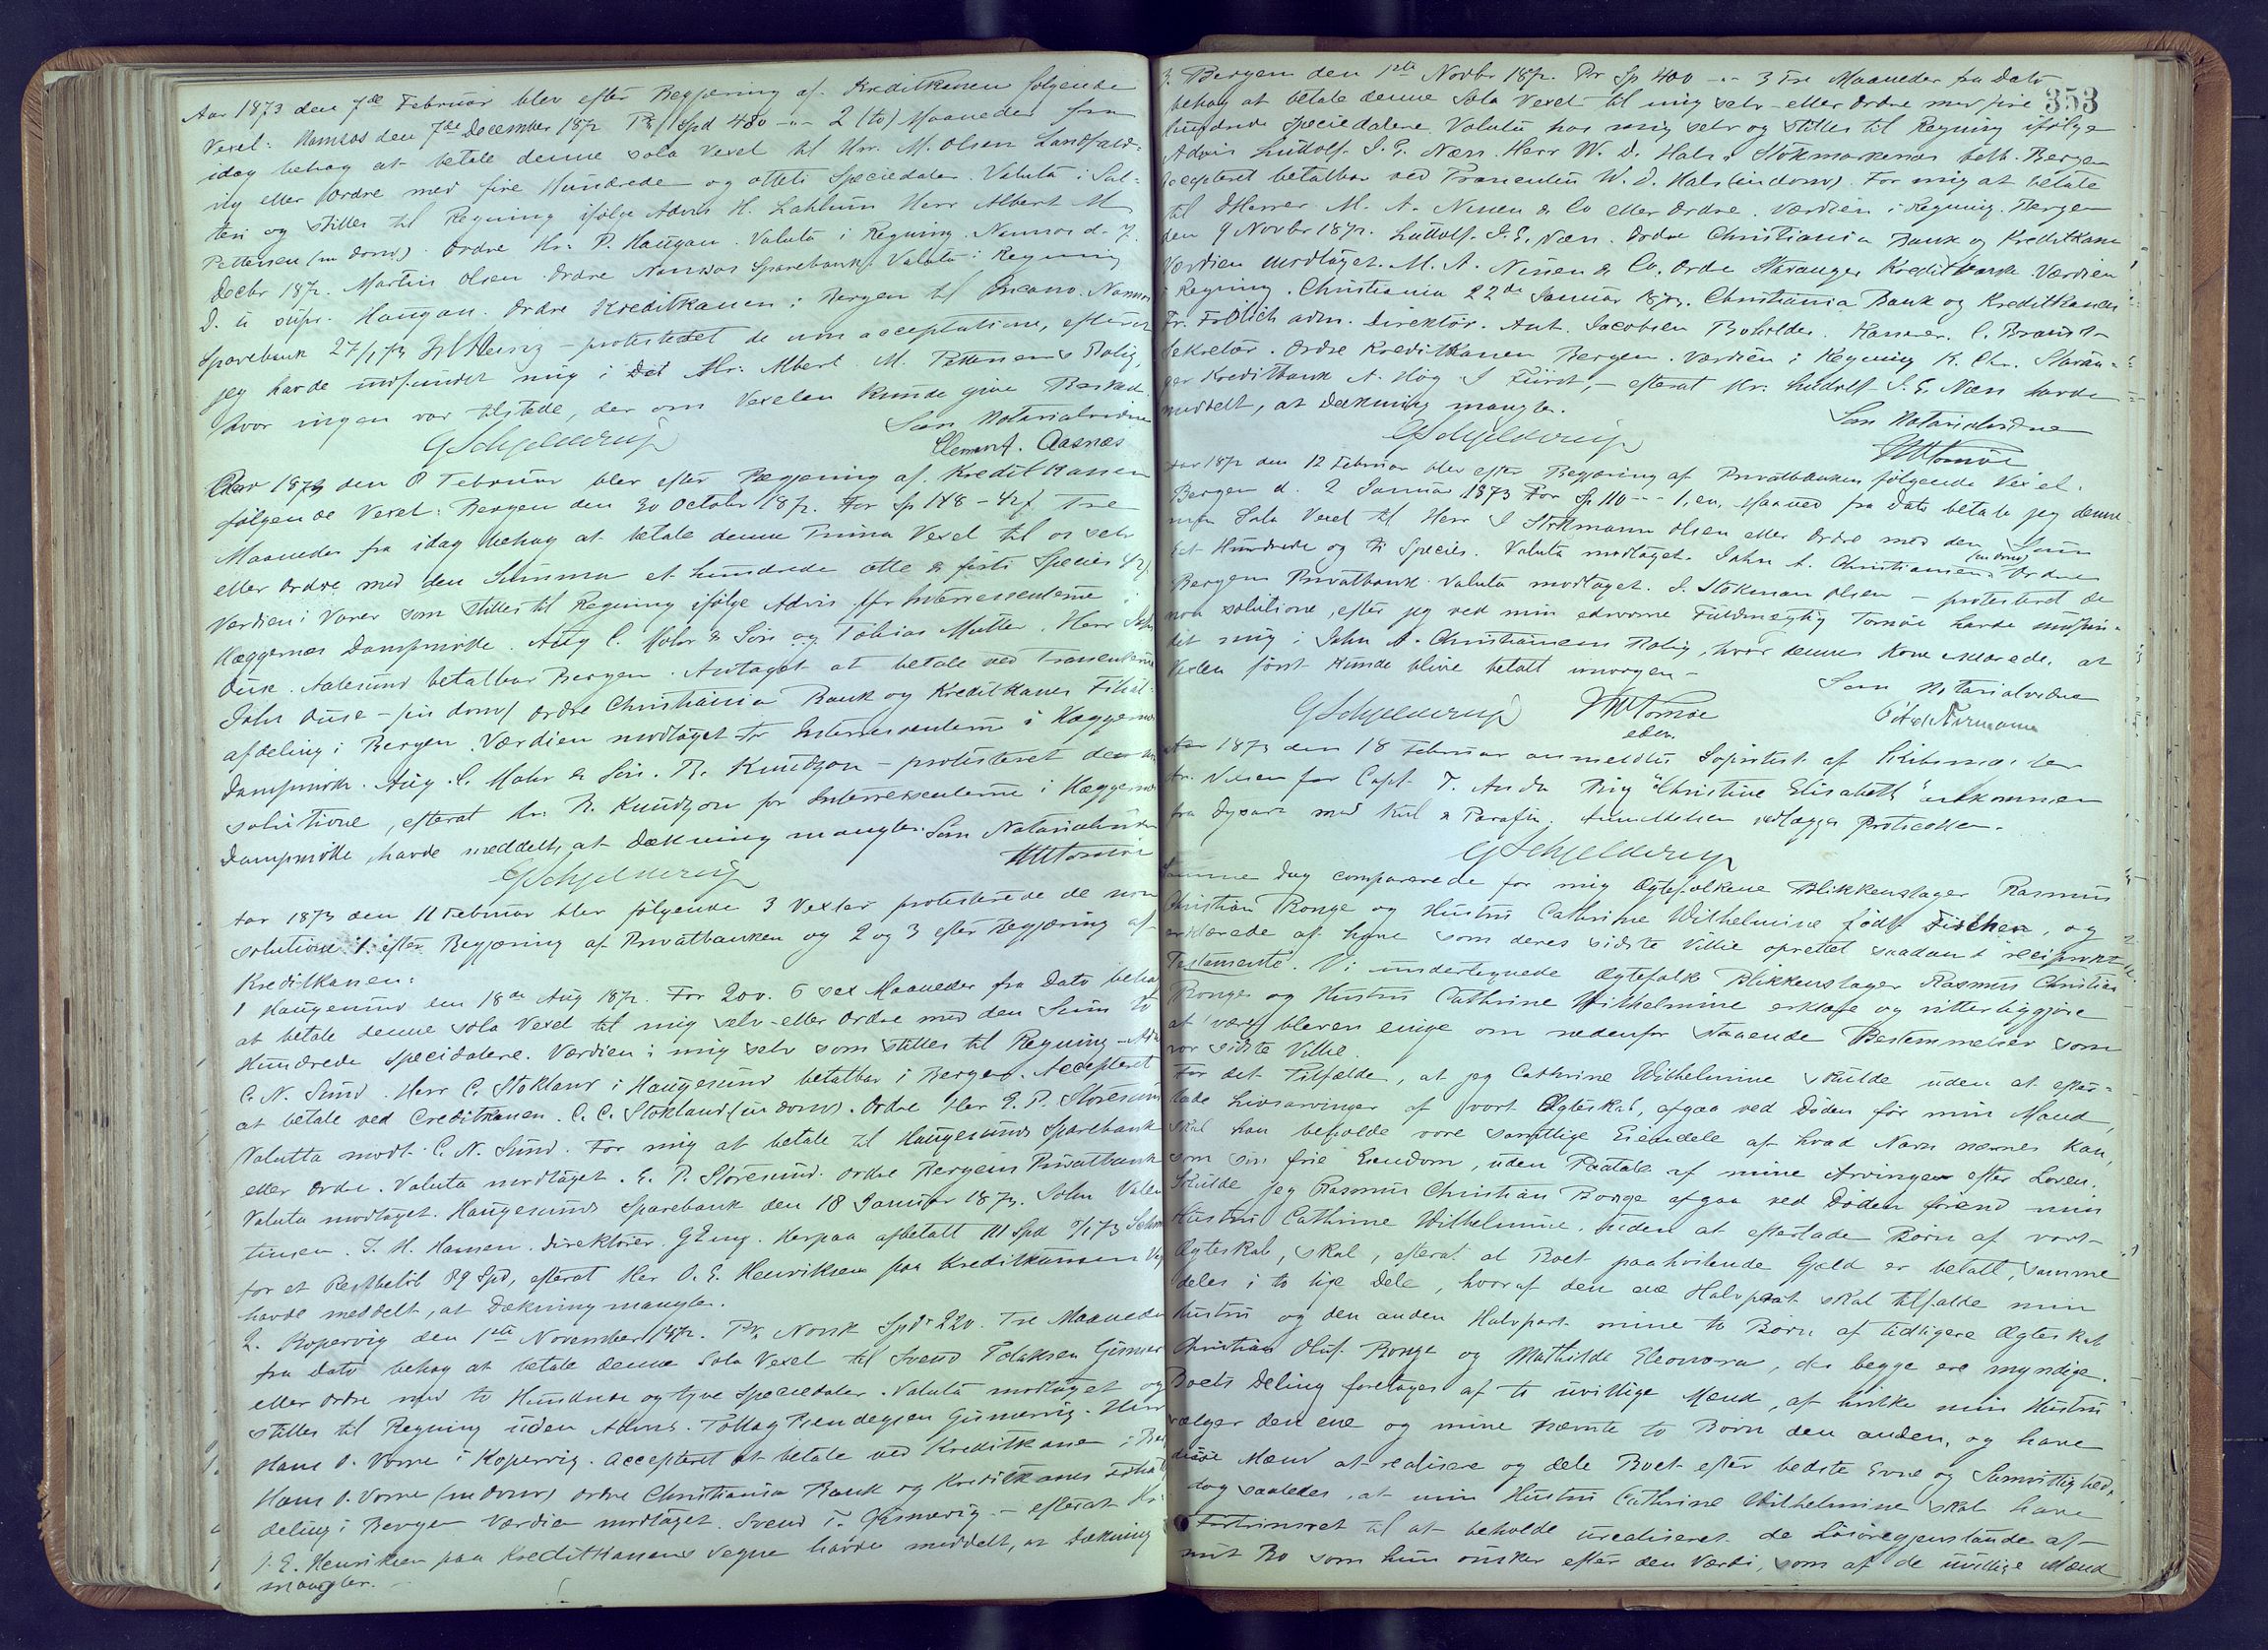 Aar 1873 den 7de Februar blev efter Begjæring af Kreditkassen følgende
Vexel: Namsos den 7de December 1872. Pr Spd 480 -"- 2 (to) Maaneder fra
idag behag at betale denne sola Vexel til Hrr. M. Olsen Landfald-
vig eller Ordre med fire Hundrede og otteti Speciedaler. Valuta i Sal-
teri og stilles til Regning ifølge Advis H. Lakhun Herr Albert M
Pettersen (in dorso). Ordre Hr: P. Haugan. Valuta i Regning. Namsos d. 7
Decbr 1872. Martin Olsen. Ordre Namsos Sparebank. Valuta i Regning
D. u supr. Haugan. Ordre Kreditkassen i Bergen til Incasso. Namsos
Sparebank 27/1 73 - protesteret de non acceptatione, efterat
jeg havde indfundet mig i Hr: Albert M. Pettersens Bolig,
hvor ingen var tilstede, der om Vexelen kunde give Besked.
Som Notarialvidne
GSchjelderup
Clement. Aasnæs
Aar 1873 den 8 Februar blev efter Begjæring af Kreditkassen
følgende Vexel: Bergen den 30 October 1872. For Sp 148 - 42 ß Tre
Maaneder fra idag behag at betale denne Prima Vexel til os selv
eller Ordre med den Summa et hundrede otte & førti Species 42
Værdien i Varer som stilles til Regning ifølge Advis for Interessenterne i
Hæggernæs Dampmølle. Aug C. Mohr & Søn og Tobias Møller. Herr John
Ouse. Aalesund betalbar Bergen. Antaget at betale ved Trassenterne
John Ouse - (in dorso) Ordre Christiania Bank og Kreditkasses Filial-
afdeling i Bergen. Værdien modtaget for Interessenterne i Hæggernæs
Dampmølle. Aug. C. Mohr & Søn. R. Knudzon - protesteret de non
solutione, efterat Hr. R. Knudzon for Interressenterne i Hæggernæs
Dampmølle havde meddelt, at Dækning mangler. Som Notarialvidne
GSchjelderup
MTornøe
Aar 1873 den 11 Februar blev følgende 3 Vexler protesterede de non
solutione: 1 efter Begjæring af Privatbanken og 2 og 3 efter Begjæring af
Kreditkassen:
1 Haugesund den 18de Aug 1872. For 200. 6 sex Maaneder fra Dato behag
at betale denne sola Vexel til mig selv eller Ordre med den Sum to
Hundrede Specidalere. Værdien i mig selv som stilles til Regning
C. N. Sund. Herr C. Stokland i Haugesund betalbar i Bergen. Accepteret
at betale ved Creditkassen. C. C. Stokland (in dorso). Ordre Herr E. P. Storesund
Valutta modt. C. N. Sund. For mig at betale til Haugesunds Sparebank
eller Ordre. Valuta modtaget. E. P. Storesund. Ordre Bergens Privatbank
Valuta modtaget. Haugesunds Sparebank den 18 Januar 1873. John Valen
tinsen. J. H. Hansen. Direktører. Herpaa afbetalt 111 Spd
for et Restbeløb 89 Spd, efterat Her O. E. Henriksen paa Kreditkassen
havde meddelt, at Dækning mangler.
2. Kopervig den 1ste November 1872. Pr. Norsk Spdr 220. Tre Maaneder
fra Dato behag at betale denne Sola Vexel til Svend Gismervig
eller Ordre med to Hundrede og tyve Speciedaler. Valuta modtaget og
stilles til Regning uden Advis. Gismervig. Herr
Hans O. Vorre i Kopervig. Accepteret at betale ved Kreditkassen i
Hans O. Vorre (in dorso) Ordre Christiania Bank og Kreditkasses Filial
deling i Bergen Værdien modtaget. Svend T. Gismervig. - efterat Hr
O. E. Henriksen paa Kreditkassens Vegne havde meddelt, at Dækning
mangler.
353
3. Bergen den 1ste Novbr 1872. Pr Sp 400 -"- 3 Tre Maaneder fra Dato
behag at betale denne Sola Vexel til mig selv eller Ordre med fire
hundrede Speciedalere. Valuta hos mig selv og stilles til Regning ifølge
Advis Ludolf J. E. Næss. Herr W. D. Hals, Stokmarknæs betb. Bergen
Accepteret betalbar ved Trassenten W. D. Hals (in dorso). For mig at betale
til DHerrer M. A. Nissen & Co eller Ordre. Værdien i Regning. Bergen
den 9 Novbr 1872. Ludolf. J. E. Næss. Ordre Christiania Bank og Kreditkasse
Værdien modtaget. M. A. Nissen & Co. Ordre Stavanger Kreditbank. Værdien
i Regning. Christiania 22de Januar 1873. Christiania Bank og Kreditkasse
Fr. Frølich adm. Direktør. Ant. Jacobsen Bokholder. C. Brandt
Sekretær. Ordre Kreditkassen Bergen. Værdien i Regning K. Chr. Stavan-
ger Kreditbank A. Høg J Fürst, - efterat Hr: Ludolf J. E. Næss havde
meddelt, at Dækning mangler.
Som Notarialvidne
GSchjelderup
MTornøe
Aar 1873 den 12 Februar blev efter Begjæring af Privatbanken følgende Vexel.
Bergen d. 2 Januar 1873 For Sp 110 -"- 1, en, Maaned fra Dato betaler jeg denne
min Sola Vexel til Herr J Stokmann Olsen eller Ordre med den Sum
Et Hundrede og ti Species. Valuta modtaget. John A. Christiansen (in dorso) Ordre
Bergens Privatbank. Valuta modtaget. J. Stokman Olsen - protesteret de
non solutione, efter jeg ved min edsvorne Fuldmægtig Tornøe havde indfun-
det mig i John A. Christiansens Bolig, hvor dennes Kone svarede, at
Vexlen først kunde blive betalt imorgen -
Som Notarialvidne
GSchjelderup MTornøe
edsv.
Aar 1873 den 18 Februar anmeldtes Søprotest af Skibsmægler
Nilsen for Capt. T. Brig "Christine Elisabeth" ankommen
fra Dysart med Kul & Parafin. Anmeldelsen vedlægges Protocollen.
GSchjelderup
Samme Dag comparerede for mig Ægtefolkene Blikkenslager Rasmus
Christian Ronge og Hustru Cathrine Wilhelmine født Fischer, og
erklærede at have som deres sidste Villie oprettet saadant reciprokt
Testamente. Vi undertegnede Ægtefolk Blikkenslager Rasmus Christian
Ronge og Hustru Cathrine Wilhelmine erklære og vitterliggjøre
at være bleven enige om nedenfor staaende Bestemmelser som
vor sidste Villie.
For det Tilfælde, at jeg Cathrine Wilhelmine skulde uden at efter-
lade Livsarvinger af vort Ægteskab, afgaa ved Døden før min Mand,
skal han beholde vore samtlige Eiendele af hvad Navn nævnes kan,
som sin frie Eiendom, uden Paatale af mine Arvinger efter Loven.
Skulde jeg Rasmus Christian Ronge afgaa ved Døden førend min
Hustru Cathrine Wilhelmine, uden at efterlade Børn af vort
Ægteskab, skal, efterat al Boet paahvilende Gjæld er betalt, samme
deles i to lige Dele, hvoraf den ene Halvpart skal tilfalde min
Hustru og den anden Halvpart mine to Børn af tidligere Ægteskab
Christian Oluf Ronge og Mathilde Eleonora, der begge ere myndige.
Boets Deling foretages af to uvillige Mænd, af hvilke min Hustru
vælger den ene og mine nævnte to Børn den anden, og have
disse Mænd at realisere og dele Boet efter bedste Evne og Samvittighed,
dog saaledes, at min Hustru Cathrine Wilhelmine skal have
Fortrinsret til at beholde urealiseret de Løsøregjenstande af
mit Bo som hun ønsker efter den Værdi, som af de uvillige Mænd